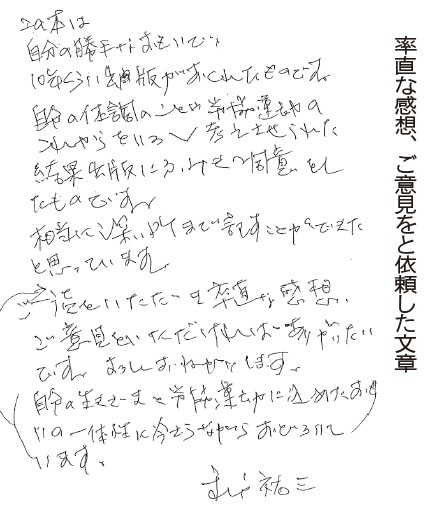 率直な感想、ご意見をと依頼した文章
この本は
自分の勝手なおもいで、
10年くらい出版がおくれたものです
自分の体調のことや労協運動の
これからをいろいろ考えさせられた
結果出版にふみきる同意をし
たものです。
相当に深い所まで記すことができた
と思っています
読んでいただいた率直な感想、
ご意見をいただければありがたい
です よろしくおねがいします。
自分の生きざまと労協運動に込めたおも
いの一体性に今さらながらおどろいて
います。
祐三